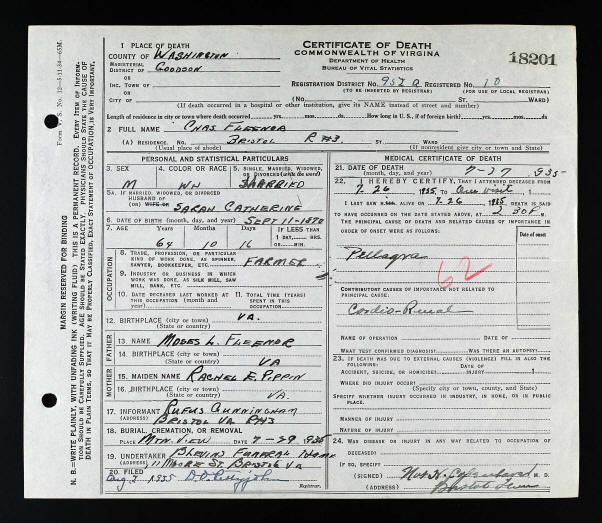 1 PLACE OF DEATH
COUNTY OF WASHINGTON
MAGISTERIAL
DISTRICT OF GOODSON
INC. TOWN OF
OR
CITY OF
CERTIFICATE OF DEATH
COMMONWEALTH OF VIRGINIA
DEPARTMENT OF HEALTH
BUREAU OF VITAL STATISTICS
18201
REGISTRATION DISTRICT NO. 952 A REGISTERED NO. 10
(TO BE INSERTED BY REGISTRAR) (FOR USE OF LOCAL REGISTRAR)
(No. ST. WARD)
(If death occurred in a hospital or other institution, give its NAME instead of street and number)
Length of residence in city or town where death occurred yrs. mos. ds. How long in U.S., if of foreign birth? yrs. mos. ds.
2 FULL NAME CHAS. FLEENOR
(A) RESIDENCE. No. BRISTOL R#3 St. Ward
(Usual place of abode) (If nonresident give city or town and State)
PERSONAL AND STATISTICAL PARTICULARS
3. SEX M
4. COLOR OR RACE WH
5. SINGLE, MARRIED, WIDOWED, OR DIVORCED (write the word) MARRIED
5A. IF MARRIED, WIDOWED, OR DIVORCED
HUSBAND OF
(OR) WIFE OF SARAH CATHERINE
6. DATE OF BIRTH (month, day, and year) SEPT 11-1870
7. AGE Years Months Days If LESS than
64 10 16 1 day, hrs. or min.
OCCUPATION
8. TRADE, PROFESSION, OR PARTICULAR KIND OF WORK DONE, AS SPINNER, SAWYER, BOOKKEEPER, ETC. FARMER
9. INDUSTRY OR BUSINESS IN WHICH WORK WAS DONE, AS SILK MILL, SAW MILL, BANK, ETC.
10. DATE DECEASED LAST WORKED AT THIS OCCUPATION (month and year)
11. TOTAL TIME (YEARS) SPENT IN THIS OCCUPATION
12. BIRTHPLACE (city or town) VA.
(State or country)
FATHER
13. NAME MOSES L. FLEENOR
14. BIRTHPLACE (city or town)
(State or country) VA
MOTHER
15. MAIDEN NAME RACHEL E. PIPPIN
16. BIRTHPLACE (city or town)
(State or country) VA.
17. INFORMANT RUFUS CUNNINGHAM
(ADDRESS) BRISTOL VA R#3
18. BURIAL, CREMATION, OR REMOVAL
PLACE MTN. VIEW 7-29 1935
19. UNDERTAKER BLEVINS FUNERAL HOME
(ADDRESS) 11 MOORE ST. BRISTOL VA
20. FILED Aug 3 1935
Registrar.
MEDICAL CERTIFICATE OF DEATH
21. DATE OF DEATH
(month, day, and year) 7-27 1935
22. I HEREBY CERTIFY, THAT I ATTENDED DECEASED FROM
7-26 1935, TO One visit
I LAST SAW H ALIVE ON 7-26 1935 DEATH IS SAID
TO HAVE OCCURRED ON THE DATE STATED ABOVE, AT 2:30 P.M.
THE PRINCIPAL CAUSE OF DEATH AND RELATED CAUSES OF IMPORTANCE IN
ORDER OF ONSET WERE AS FOLLOWS:
Date of onset
Pellagra
62
CONTRIBUTORY CAUSES OF IMPORTANCE NOT RELATED TO
PRINCIPAL CAUSE:
Cardio-Renal
NAME OF OPERATION DATE OF
WHAT TEST CONFIRMED DIAGNOSIS? WAS THERE AN AUTOPSY?
23. IF DEATH WAS DUE TO EXTERNAL CAUSES (VIOLENCE) FILL IN ALSO THE
FOLLOWING: DATE OF
ACCIDENT, SUICIDE, OR HOMICIDE? INJURY 1
WHERE DID INJURY OCCUR?
(Specify city or town, county, and State)
SPECIFY WHETHER INJURY OCCURRED IN INDUSTRY, IN HOME, OR IN PUBLIC
PLACE.
MANNER OF INJURY
NATURE OF INJURY
24. WAS DISEASE OR INJURY IN ANY WAY RELATED TO OCCUPATION OF
DECEASED?
IF SO, SPECIFY
(SIGNED) M. D.
(ADDRESS) Bristol Tenn
Form V. S. No. 12
MARGIN RESERVED FOR BINDING
N. B.—WRITE PLAINLY, WITH UNFADING INK (WRITING FLUID) THIS IS A PERMANENT RECORD. EVERY ITEM OF INFORMATION SHOULD BE CAREFULLY SUPPLIED. AGE SHOULD BE STATED EXACTLY. PHYSICIANS SHOULD STATE THE CAUSE OF DEATH IN PLAIN TERMS, SO THAT IT MAY BE PROPERLY CLASSIFIED. EXACT STATEMENT OF OCCUPATION IS VERY IMPORTANT.